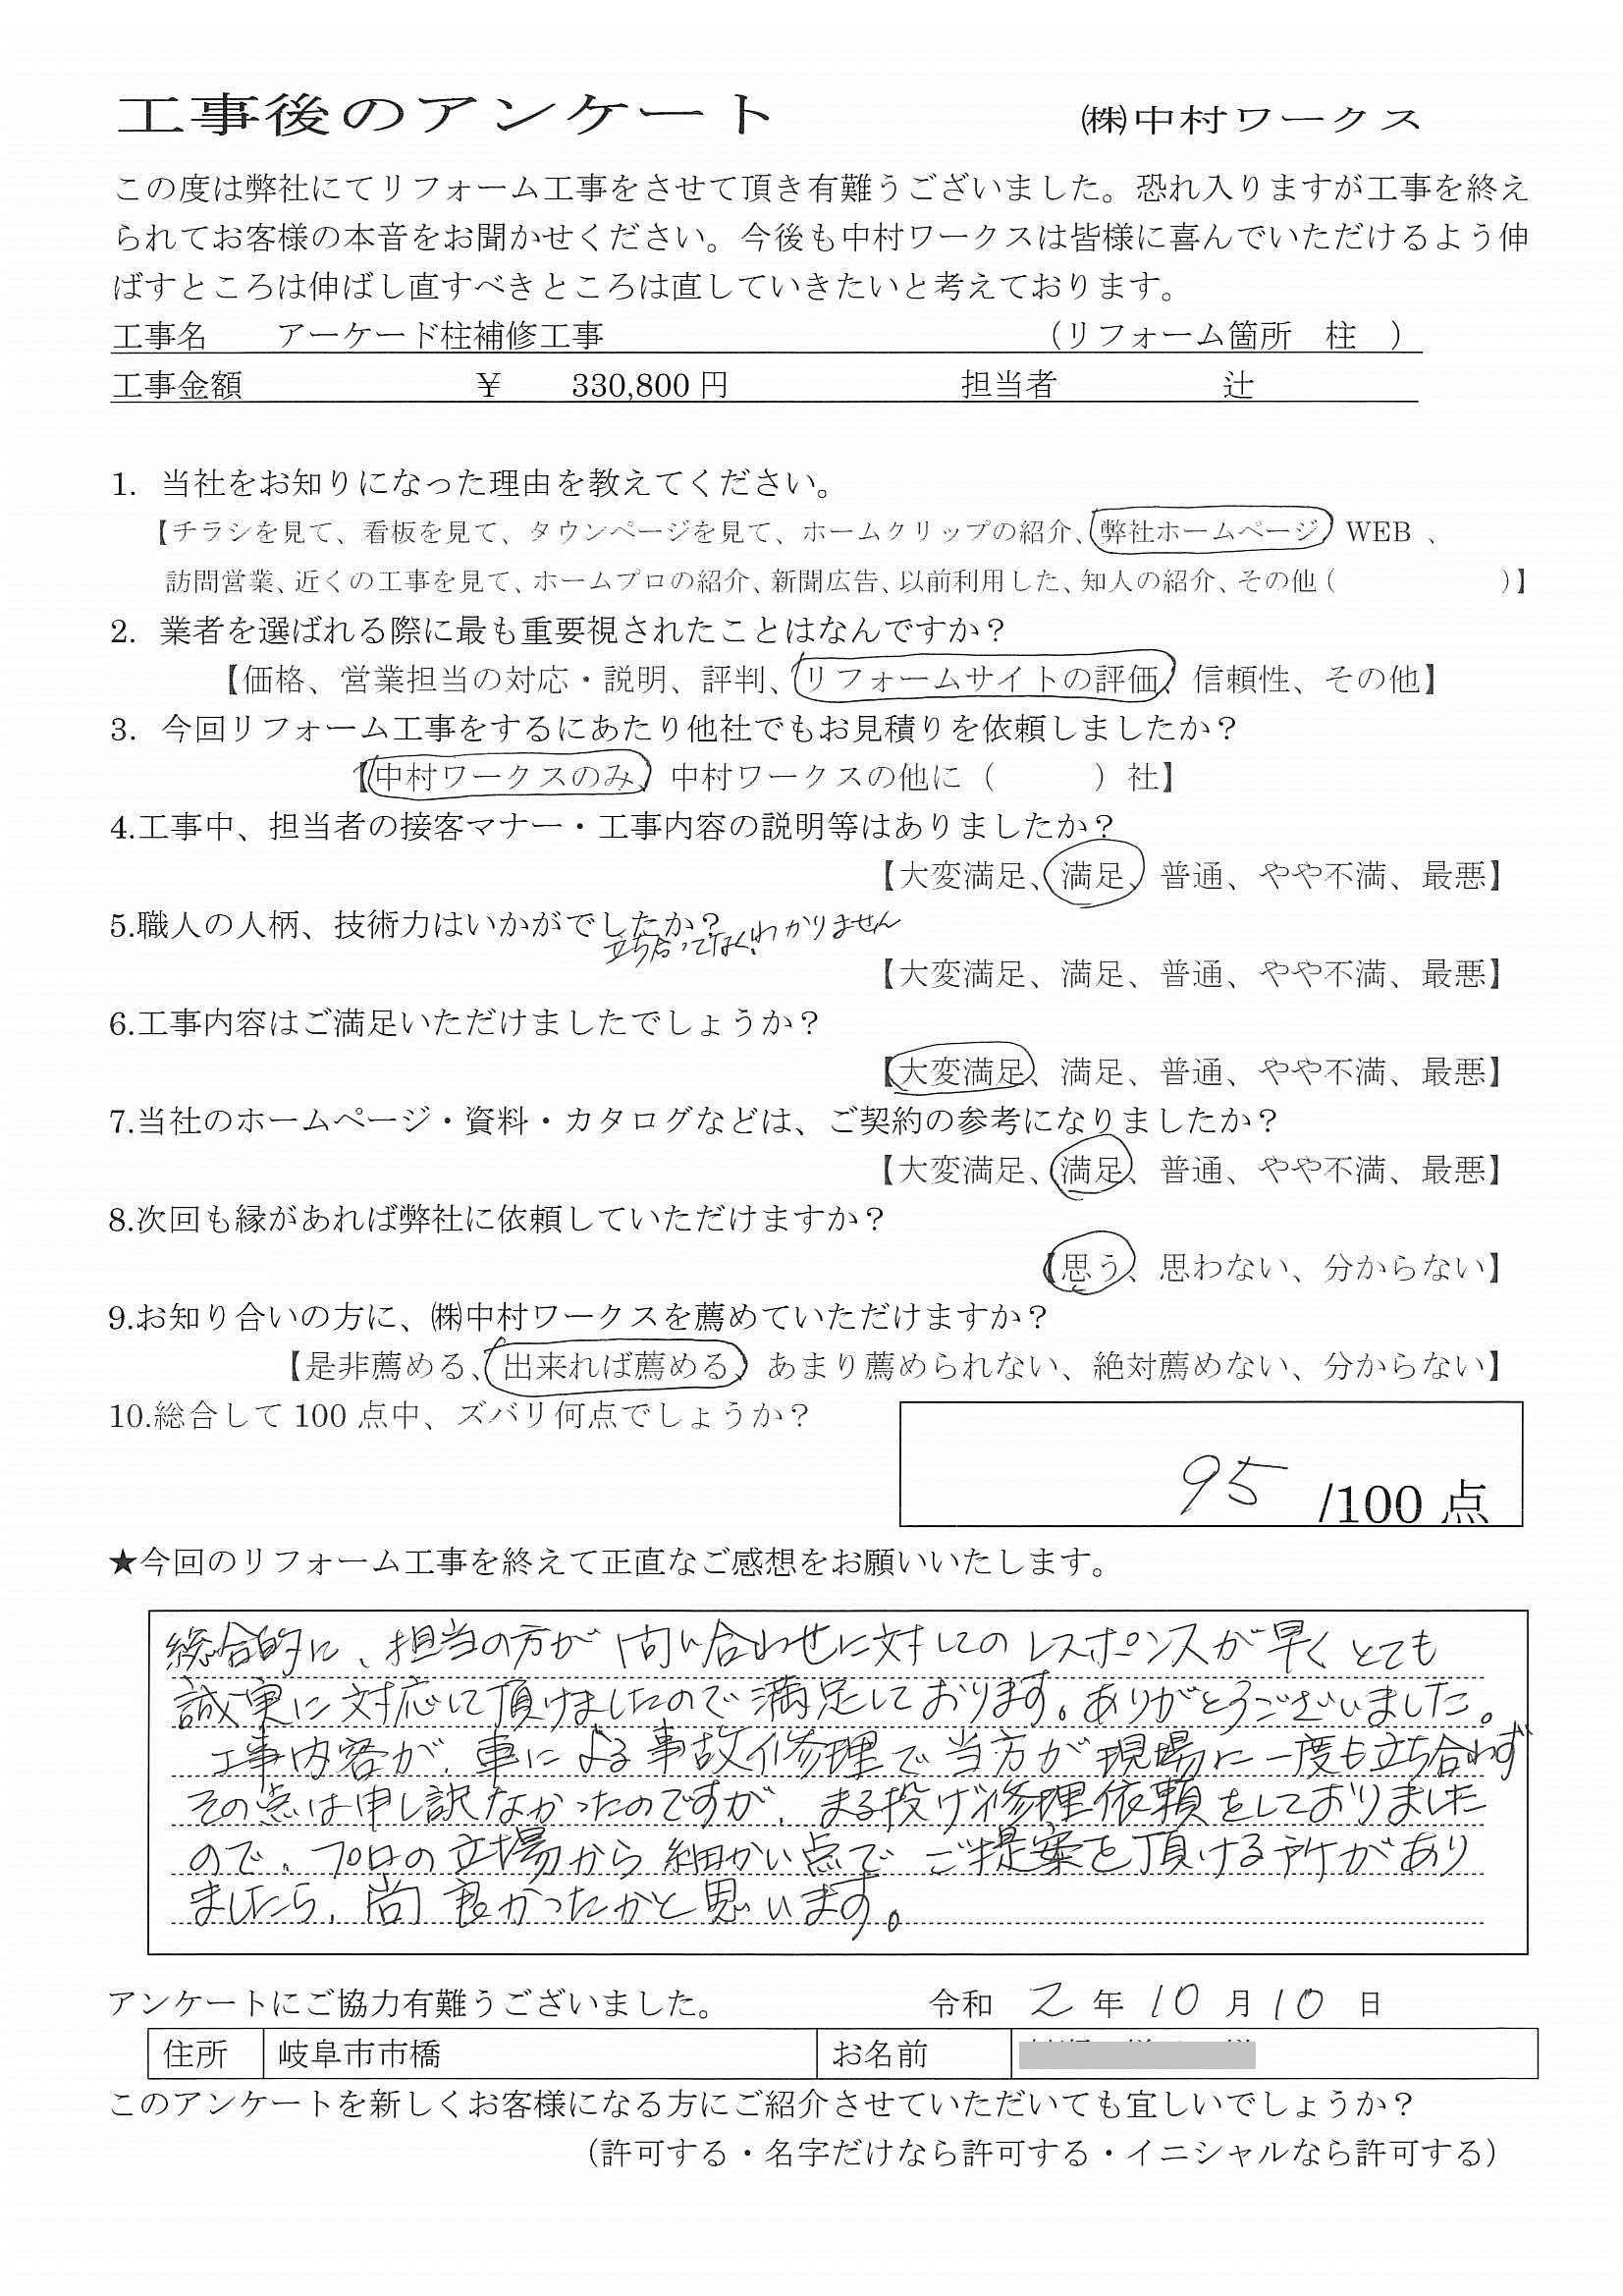 工事後のアンケート ㈱中村ワークス
この度は弊社にてリフォーム工事をさせて頂き有難うございました。恐れ入りますが工事を終え
られてお客様の本音をお聞かせください。今後も中村ワークスは皆様に喜んでいただけるよう伸
ばすところは伸ばし直すべきところは直していきたいと考えております。
工事名 アーケード柱補修工事 (リフォーム箇所 柱 )
工事金額 ￥ 330,800 円 担当者 辻
1. 当社をお知りになった理由を教えてください。
【チラシを見て、看板を見て、タウンページを見て、ホームクリップの紹介、弊社ホームページ WEB 、
訪問営業、近くの工事を見て、ホームプロの紹介、新聞広告、以前利用した、知人の紹介、その他( )】
2. 業者を選ばれる際に最も重要視されたことはなんですか？
【価格、営業担当の対応・説明、評判、リフォームサイトの評価、信頼性、その他】
3. 今回リフォーム工事をするにあたり他社でもお見積りを依頼しましたか？
【中村ワークスのみ、中村ワークスの他に（ ）社】
4.工事中、担当者の接客マナー・工事内容の説明等はありましたか？
【大変満足、満足、普通、やや不満、最悪】
5.職人の人柄、技術力はいかがでしたか？
立ち合ってなくわかりません
【大変満足、満足、普通、やや不満、最悪】
6.工事内容はご満足いただけましたでしょうか？
【大変満足、満足、普通、やや不満、最悪】
7.当社のホームページ・資料・カタログなどは、ご契約の参考になりましたか？
【大変満足、満足、普通、やや不満、最悪】
8.次回も縁があれば弊社に依頼していただけますか？
【思う、思わない、分からない】
9.お知り合いの方に、㈱中村ワークスを薦めていただけますか？
【是非薦める、出来れば薦める、あまり薦められない、絶対薦めない、分からない】
10.総合して 100 点中、ズバリ何点でしょうか？
95 /100 点
★今回のリフォーム工事を終えて正直なご感想をお願いいたします。
総合的に、担当の方が問い合わせに対してのレスポンスが早くとても
誠実に対応して頂けましたので満足しております。ありがとうございました。
工事内容が、車による事故修理で当方が現場に一度も立ち合わず
その点は申し訳なかったのですが、まる投げ修理依頼をしておりました
ので、プロの立場から細かい点でご提案を頂ける所があり
ましたら、尚良かったかと思います。
アンケートにご協力有難うございました。 令和 2 年 10 月 10 日
住所 岐阜市市橋 お名前
このアンケートを新しくお客様になる方にご紹介させていただいても宜しいでしょうか？
(許可する・名字だけなら許可する・イニシャルなら許可する)